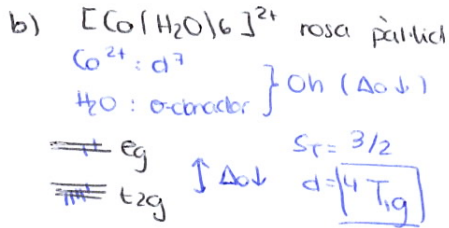 b) [Co(H2O)6]2+ rosa pàl·lid
Co2+: d7
H2O : σ-donador } Oh (Δo↓)
eg
t2g ↕ Δo↓
ST = 3/2
d = 4T1g